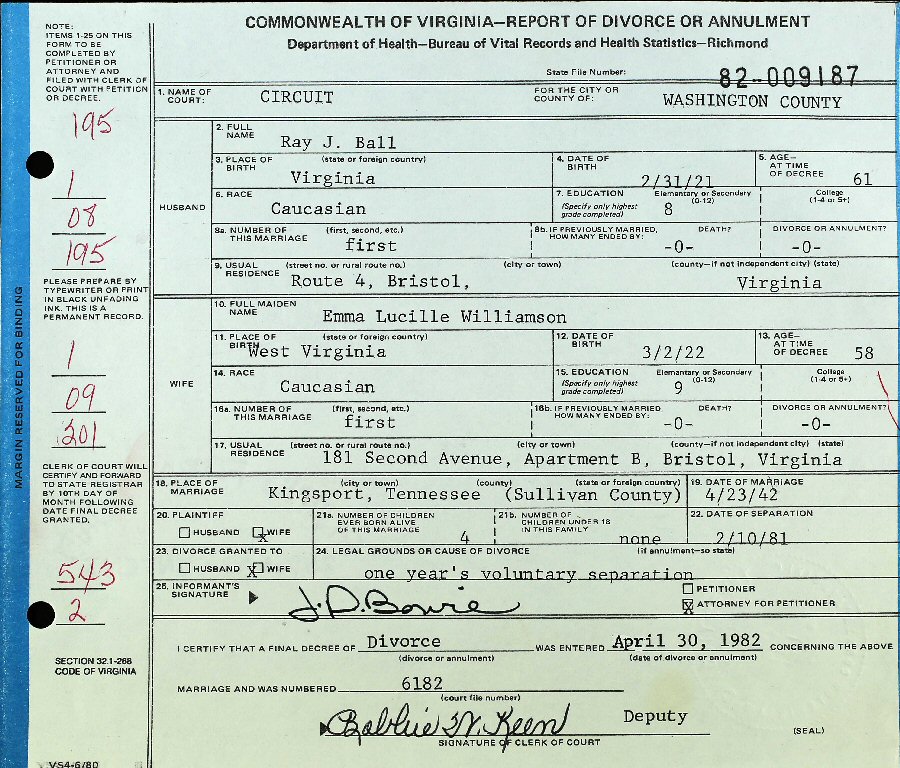 COMMONWEALTH OF VIRGINIA—REPORT OF DIVORCE OR ANNULMENT
Department of Health—Bureau of Vital Records and Health Statistics—Richmond
NOTE:
ITEMS 1-25 ON THIS
FORM TO BE
COMPLETED BY
PETITIONER OR
ATTORNEY AND
FILED WITH CLERK OF
COURT WITH PETITION
OR DECREE.
195
1
08
195
PLEASE PREPARE BY
TYPEWRITER OR PRINT
IN BLACK UNFADING
INK. THIS IS A
PERMANENT RECORD.
1
09
201
CLERK OF COURT WILL
CERTIFY AND FORWARD
TO STATE REGISTRAR
BY 10TH DAY OF
MONTH FOLLOWING
DATE FINAL DECREE
GRANTED.
543
2
SECTION 32.1-268
CODE OF VIRGINIA
VS4-6/80
MARGIN RESERVED FOR BINDING
State File Number: 82-009187
1. NAME OF COURT: CIRCUIT FOR THE CITY OR COUNTY OF: WASHINGTON COUNTY
HUSBAND
2. FULL NAME Ray J. Ball
3. PLACE OF BIRTH (state or foreign country) Virginia 4. DATE OF BIRTH 2/31/21 5. AGE—AT TIME OF DECREE 61
6. RACE Caucasian 7. EDUCATION (Specify only highest grade completed) Elementary or Secondary (0-12) 8 College (1-4 or 5+)
8a. NUMBER OF THIS MARRIAGE (first, second, etc.) first 8b. IF PREVIOUSLY MARRIED, HOW MANY ENDED BY: DEATH? -0- DIVORCE OR ANNULMENT? -0-
9. USUAL RESIDENCE (street no. or rural route no.) (city or town) (county—if not independent city) (state)
Route 4, Bristol, Virginia
WIFE
10. FULL MAIDEN NAME Emma Lucille Williamson
11. PLACE OF BIRTH (state or foreign country) West Virginia 12. DATE OF BIRTH 3/2/22 13. AGE—AT TIME OF DECREE 58
14. RACE Caucasian 15. EDUCATION (Specify only highest grade completed) Elementary or Secondary (0-12) 9 College (1-4 or 5+)
16a. NUMBER OF THIS MARRIAGE (first, second, etc.) first 16b. IF PREVIOUSLY MARRIED HOW MANY ENDED BY: DEATH? -0- DIVORCE OR ANNULMENT? -0-
17. USUAL RESIDENCE (street no. or rural route no.) (city or town) (county—if not independent city) (state)
181 Second Avenue, Apartment B, Bristol, Virginia
18. PLACE OF MARRIAGE (city or town) (county) (state or foreign country) Kingsport, Tennessee (Sullivan County) 19. DATE OF MARRIAGE 4/23/42
20. PLAINTIFF HUSBAND X WIFE 21a. NUMBER OF CHILDREN EVER BORN ALIVE OF THIS MARRIAGE 4 21b. NUMBER OF CHILDREN UNDER 18 IN THIS FAMILY none 22. DATE OF SEPARATION 2/10/81
23. DIVORCE GRANTED TO HUSBAND X WIFE 24. LEGAL GROUNDS OR CAUSE OF DIVORCE (if annulment—so state) one year's voluntary separation
25. INFORMANT'S SIGNATURE J.D. Bowie PETITIONER X ATTORNEY FOR PETITIONER
I CERTIFY THAT A FINAL DECREE OF Divorce WAS ENTERED April 30, 1982 CONCERNING THE ABOVE
(divorce or annulment) (date of divorce or annulment)
MARRIAGE AND WAS NUMBERED 6182
(court file number)
Bobbie W. Keen Deputy
SIGNATURE OF CLERK OF COURT (SEAL)